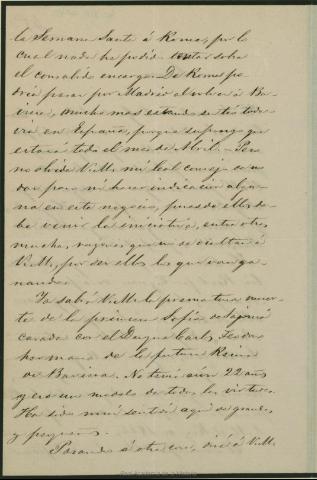 la Semana Santa á Roma, por lo
cual nada he podido tentar sobre
el consabido encargo. De Roma po
dría pasar por Madrid al volver á Ba
viera, mucho mas estando su tía toda
vía en España, porque supongo que
estará todo el mes de Abril. Pero
no olvide V.M. mi leal consejo de no
dar para mi hacer indicacion algu
na en este negocio, pues de ellos de
be venir la iniciativa, entre otras
muchas razones que no se ocultan á
V.M., por ser ellos los que van ga
nando.
Ya sabrá V.M. la prematura muer
te de la princesa Sofia de
casada con el Duque Carlos Teodoro
hermana de la futura Reina
de Baviera. No tenía aún 22 años
y era un modelo de todas las virtudes.
Ha sido muy sentida aquí de grandes
y pequeños.
Pasando á otra cosa, diré á V.M.